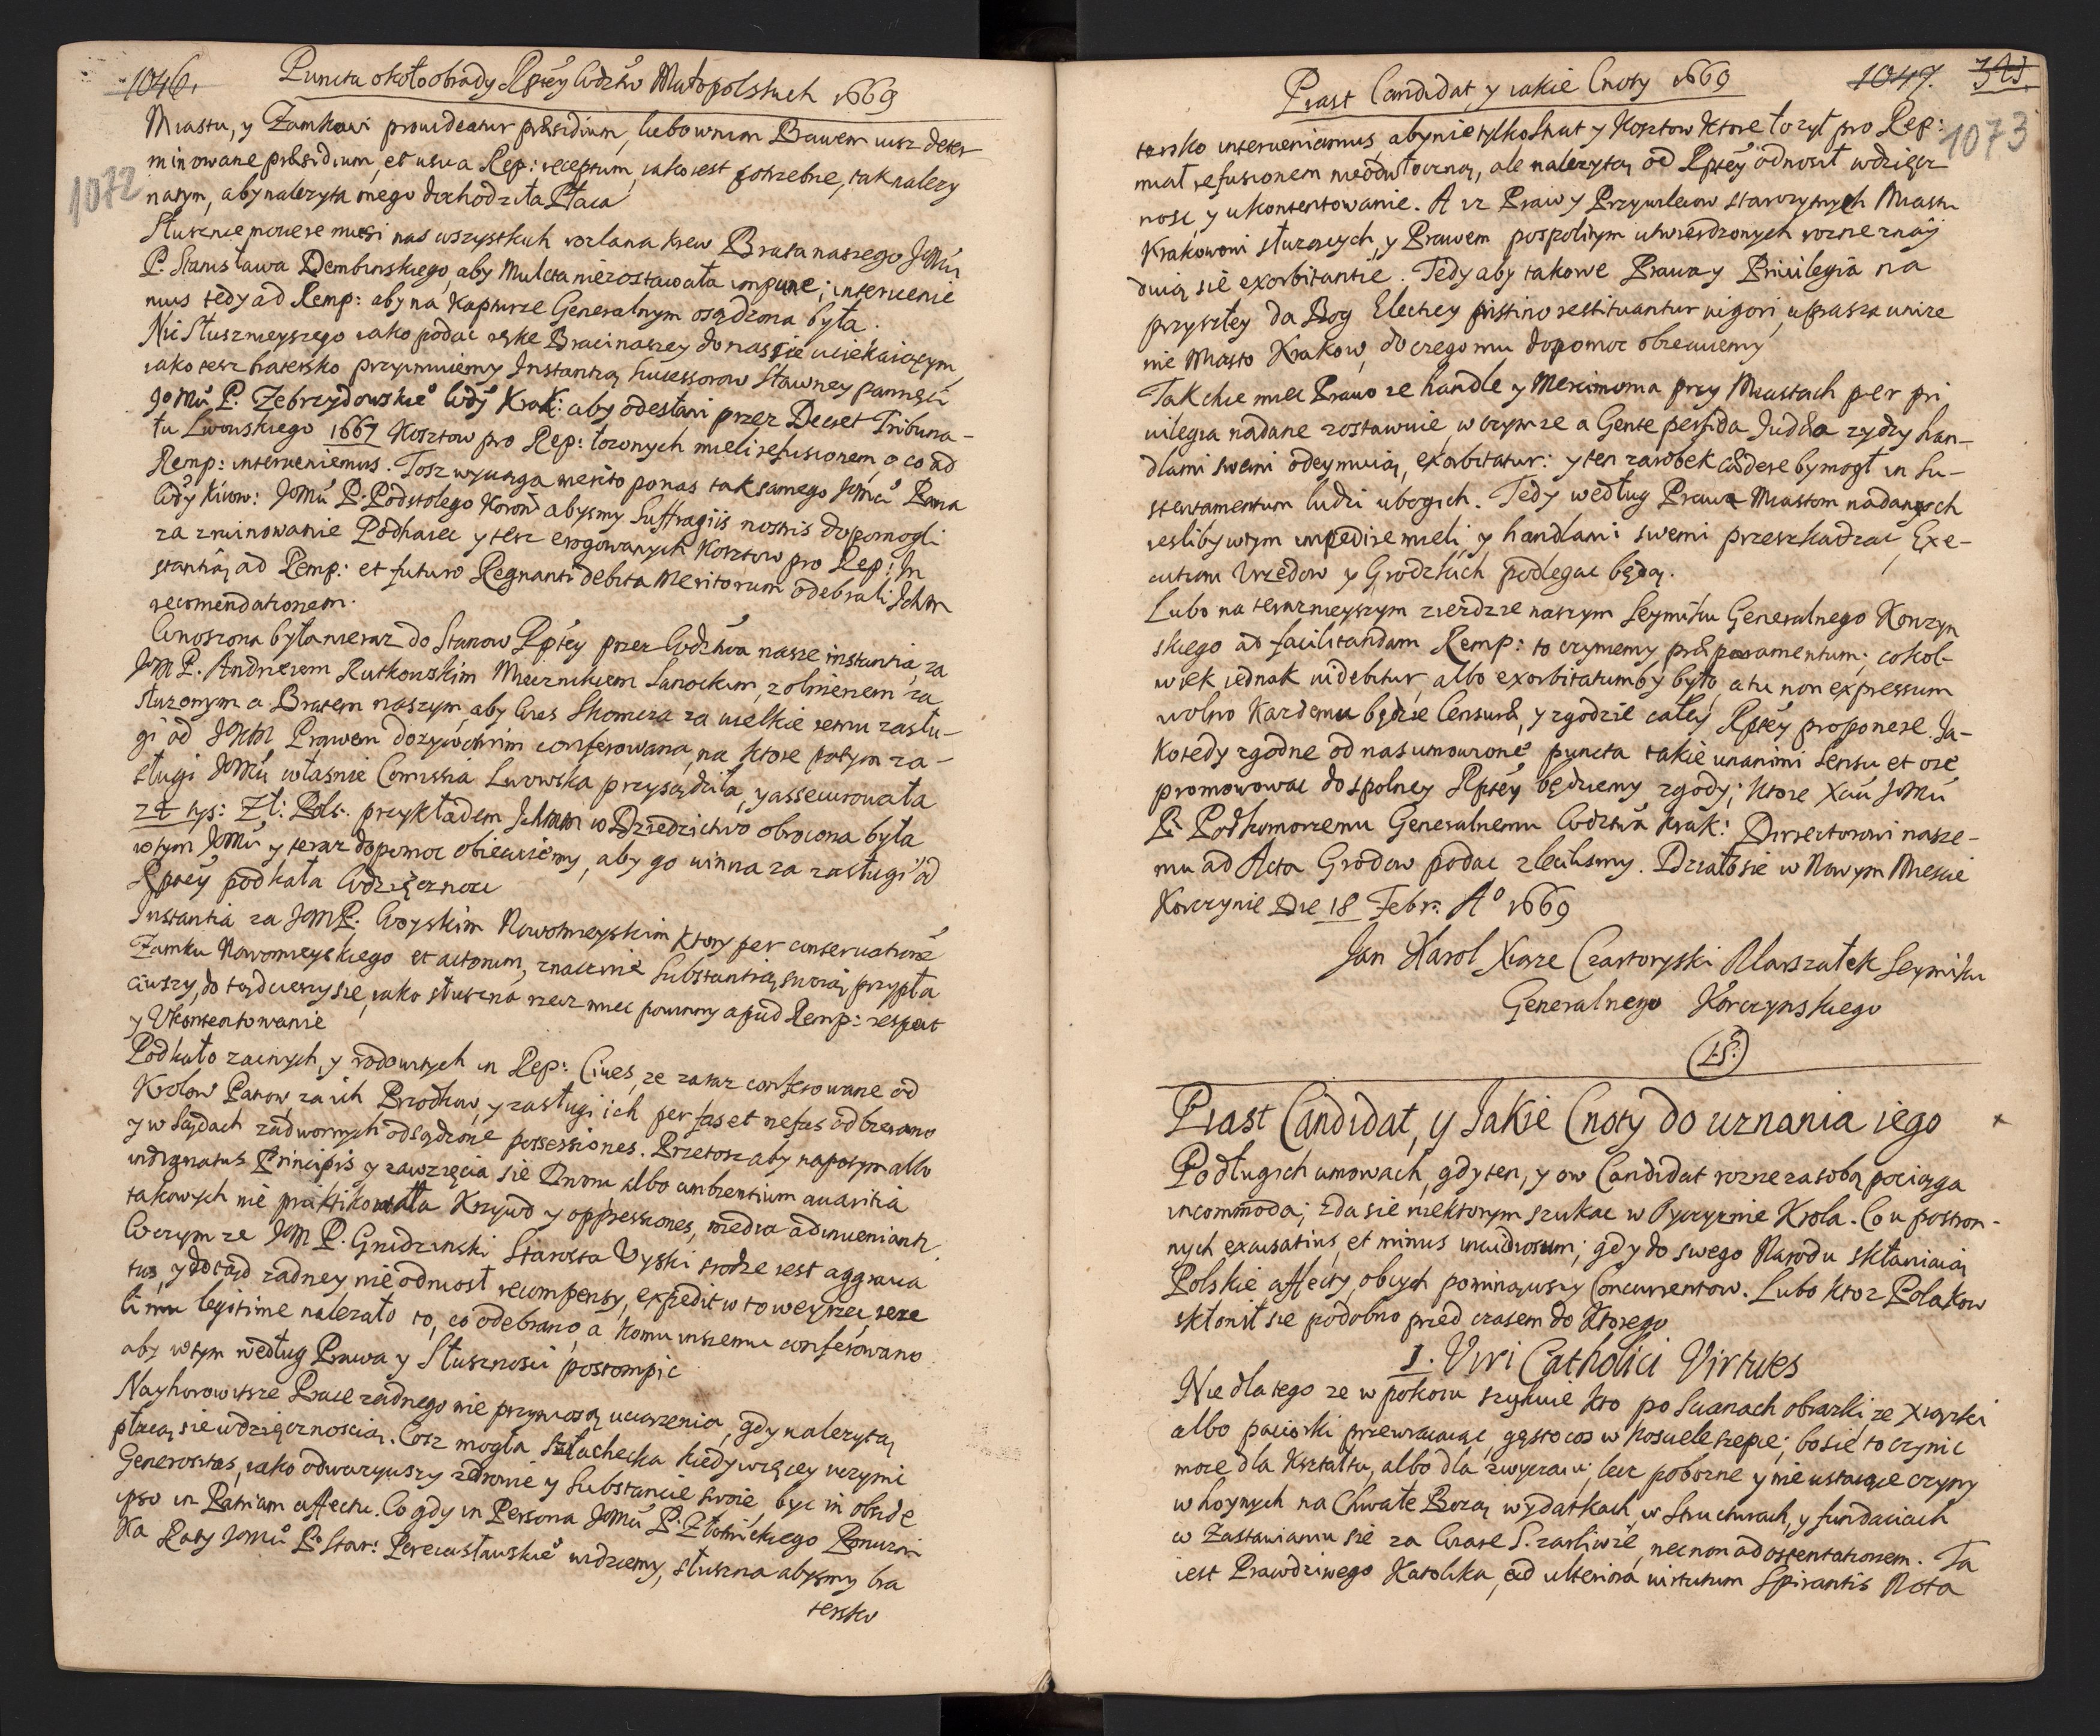 1046.
Puncta około obrady Rptey Wdztw Małopolskich 1669
1072
Miastu, y Zamkowi prouideatur præsidium, lubo wnim Prawem iusz deter
minowane præsidium, et usu a Rep: receptum, iako iest potrzebne, tak nalezy
natym, aby nalezyta onego dochodziła Płaca
Słusznie mouere musi nas wszystkich rozlana krew Brata naszego JoMci
P. Stanisława Dembinskiego, aby Mulcta niezostawała impune; interuenie
mus tedy ad Remp: aby na Kapturze Generalnym osądzona była.
Nic Słusznieyszego iako podac rękę Braci naszey do nas sie uciekaiącym,
iako tesz bratersko przyimuiemy Instantią Sucessorow Sławney pamięci
JoMci P. Zebrzydowskie° Wdy Krak: aby odesłani przez Decret Tribuna-
łu Lwowskiego 1667 Kosztow pro Rep: łozonych mieli refusionem, o co ad
Remp: interueniemus. Tosz wyciąga merito po nas tak samego JoMci Pana
Wdy Kiiow: JoMci P. Podstolego Koron abysmy Suffragiis nostris dopomogli
za zruinowanie Podhaiec y tesz erogowanych Kosztow pro Rep: In
stantią ad Remp: et futuro Regnanti debita Meritorum odebrali Ichm
recomendationem.
Wnoszona była nieraz do Stanow Rptey przez Wdztwa nasze instantia, za
JoM P. Andrzeiem Rutkowskim Miecznikiem Sanockim, zolnierzem za
słuzonym a Bratem naszym, aby Wies Skomcza za wielkie iemu zasłu-
gi od IchM Prawem dozywotnim conferowana, na ktore potym za-
sługi JoMci własnie Comissia Lwowska przysądziła, y assecurowała
24 tys: Zł: Pols: przykładem Ichmm w Dziedzictwo obrocona była
w tym JoMci y teraz dopomoc obiecuiemy, aby go winna za zasługi od
Rptey podkała Wdzięcznosc
Instantia za JoM P. Woyskim Nowomeyskim ktory per conseruatione
Zamku Nowomeyskiego et actorum, znacznie Substantią swoią przypła
ciwszy, do tąd cieszy sie, iako słuszna rzecz miec powinny apud Remp: respect
y Vkontentowanie
Podkało zacnych, y rodowitych in Rep: Ciues, ze zaraz conferowane od
Krolow Panow, za ich Przodkow, y zasługi ich per fas et nefas odbierano
y w Sądach zadwornych odsądzone possessiones. Przetosz aby napotym albo
indignatus Principis y zawzięcia sie Dnoru albo ambientium auaritia
takowych nie praktikowała Krzywd y oppressiones, media adinueniant.
Wczym ze JoM P. Grudzinski Starosta Uyski srodze iest aggraua
tus, y dotąd zadney nie odniosł recompensy, expedit w to weyrzec, ieze
li mu legitime nalezało to, co odebrano, a komu inszemu conferowano
aby w tym według Prawa y Słusznosci postompic
Nayhorowitsze Prace zadnego nie przynoszą uciązenia, gdy nalezytą
płacą sie wdzięcznoscią. Cosz mogła szlachecka kiedy więcey uczynic
Generositas, iako odwazywszy zdrowie y Substancie swoie, byc in obside
ipso in Patriam affectu. Co gdy in Persona JoMci P. Złotnickiego Ponurzni
ka Raty JoMci P. Star: Pereiasławskie° widziemy, słuszna abysmy bra
tersko
Piast Candidat, y iakie Cnoty 1669
1047.
1073
tersko interueniamus, abynietylko Skut y Kosztow ktore łozył pro Rep:
miał refusionem nieodwłoczną, ale nalezytą od Rptey odniosł wdzięcz
nosc, y ukontentowanie. A iz Praw y Przywileiow starozytnych Miastu
Krakowowi słuzących, y Prawem pospolitym utwierdzonych rozne znay
duią sie exorbitantie. Tedy aby takowe Prawa y Priuilegia na
przyszłey da Bog Electiey pristino restituantur uigori uprasza unize
nie Miasto Krakow, do czego mu dopomoc obiecuiemy
Tak chce miec Prawo ze handle y Mercimonia przy Miastach per pri
uilegia nadane zostawuie, w czym ze a Gente perfida Judæa zydzy han-
dlami swemi odeymuią, exorbitatur: y ten zarobek cædere by mogł in Su-
stentamentum ludzi ubogich. Tedy według Prawa Miastom nadanych
iesliby wtym impedire mieli, y handlami swemi przeszkadzac, Exe-
cutiom Vrzędow y Grodzkich podlegac będą.
Lubo na teraznieyszym ziezdzie naszym Seymiku Generalnego Korczyn
skiego ad facilitandam Remp: to czyniemy præparamentum; cokol-
wiek iednak uidebitur, albo exorbitatum by było, a tu non expressum
wolno Kazdemu będzie Censuræ, y zgodzie całey Rptey proponere. Ia-
ko tedy zgodne od nas umowione puncta takie unanimi Sensu et ore
promowowac do spolney Rptey będziemy zgody; ktore Xciu JoMci
P. Podkomorzemu Generalnemu Wdztwa Krak: Directorowi nasze-
mu ad Acta Grodow podac zlecilismy. Działo sie w Nowym Miescie
Korczynie Die 18 Febr: A° 1669
Jan Karol Xiąze Czartoryski Marszałek Seymiku
Generalnego Korczynskiego
LS:
Piast Candidat, y Jakie Cnoty do uznania iego
Po długich umowach, gdy ten, y ow Candidat rozne za sobą pociąga
incommoda; zda sie niektorym szukac w Oyczyznie Krola. Co u postron-
nych excusatius, et minus inuidiosum; gdy do swego Narodu skłaniaią
Polskie affecty, obcych pominąwszy Concurrentow. Lubo ktoz Polakow
skłonił sie podobno przed czasem do Ktorego
I. Viri Catholici Virtutes
Nie dla tego ze w pokoiu szykuie kto po Scianach obrazki, ze xiązki
albo paciorki przewracaiąc, gęsto cos w kosciele szepce; bo sie to czynic
moze dla kształtu, albo dla zwyczaiu; lecz pobozne y nie ustaiące czyny
w hoynych na Chwałe Bozą wydatkach, w Structurach, y fundaciach
w Zastawianiu sie za Wiare S. zarliwie, nec non ad ostentationem. Ta
iest Prawdziwego Katolika, ad ulteriora uirtutum Spirantis Nota